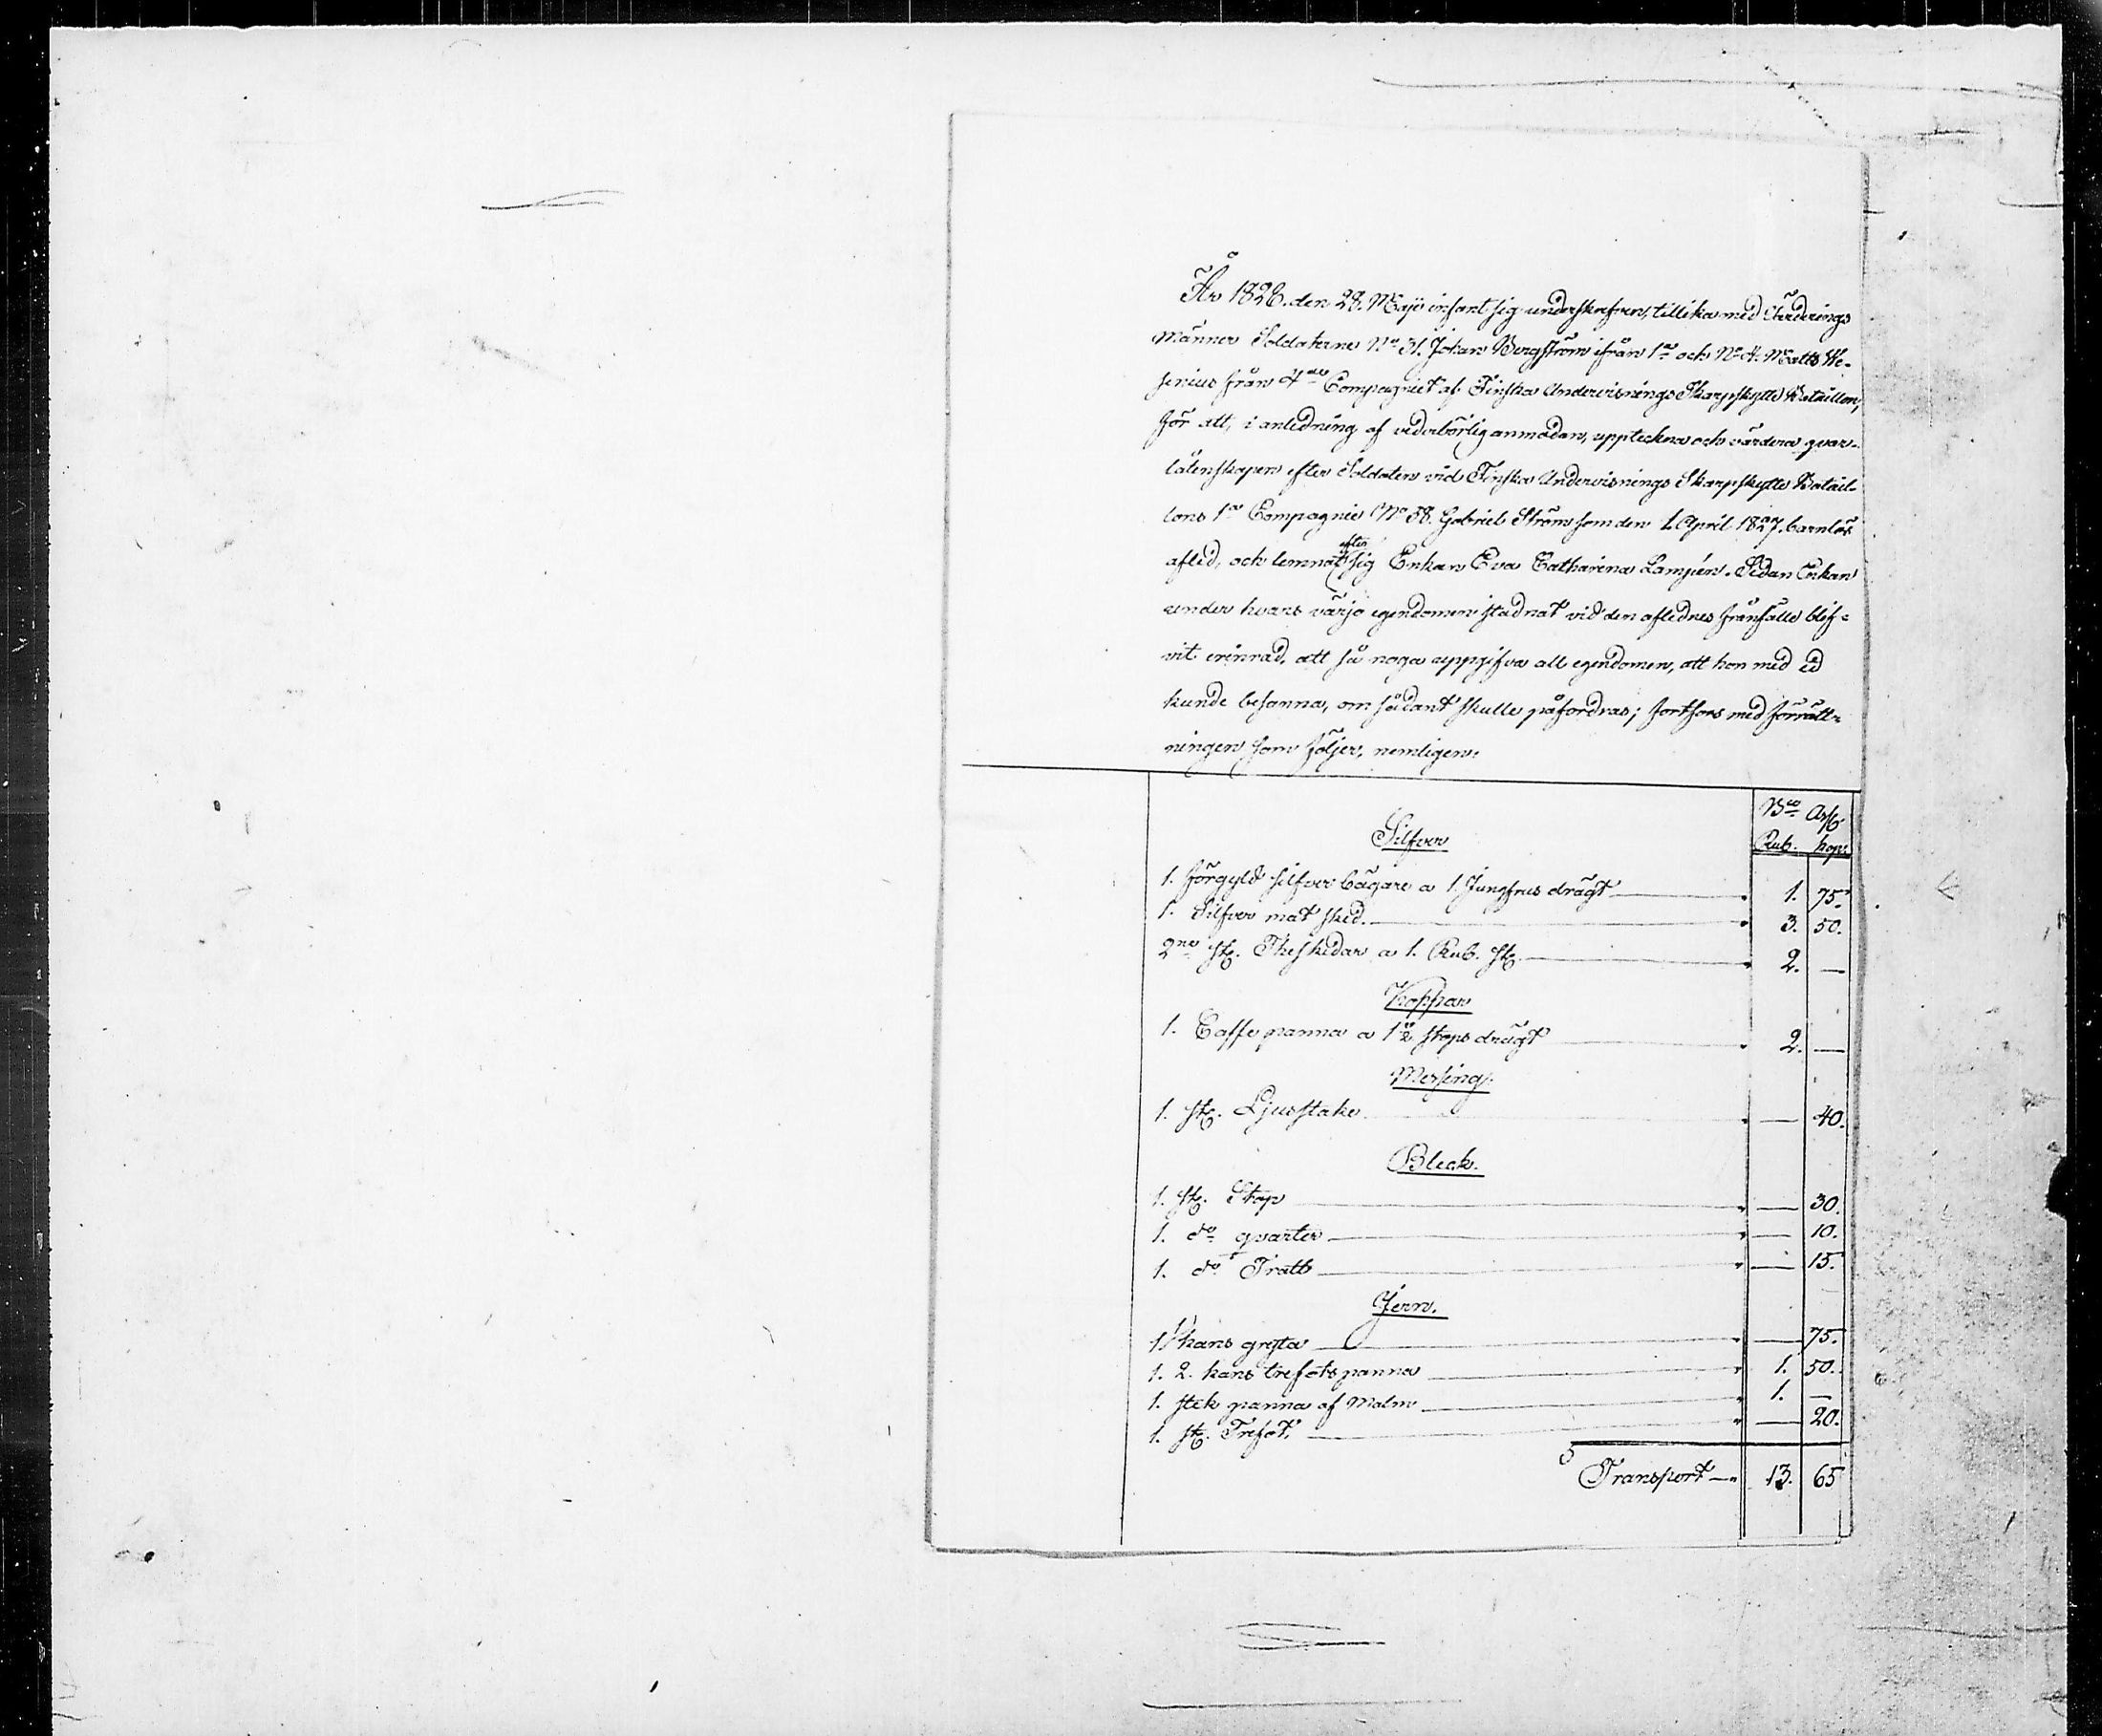 År 1828. den 28. Maji infant sig underskrefven, tillika med Värderings
Männer Soldaterne No 31. Johan Bergström ifrån 1a och No 4. Matts We-
senius från 4de Compagniet af Finska Undervisnings Skarpskytte Bataillon,
för att, i anledning af vederbörlig anmodan, uppteckna och värdera qvar-
låtenskapen efter Soldaten vid Finska Undervisnings Skarpskytte Batail-
lons 1a Compagnie No 38. Gabriel Ström som den 1. April 1827. barnlös
afled, och lemnat efter sig Enkan Eva Catharina Lampén. Sedan Enkan
under hvars värjo egendomen stadnat vid den aflednes frånfälle blif-
vit erinrad, att så noga uppgifva all egendomen, att hon med ed
kunde besanna, om sådant skulle påfordras; fortfors med förrätt-
ningen som följer, nemligen:
Bco Ass.
Silfver Rub. kop.
1. förgyld silfver bägare a 1. Jungfrus drägt 1. 75.
1. Silfver mat sked. 3. 50.
2ne st. Theskedar a 1. Rub. st. 2. —
Koppar
1. Caffe panna a 1/2 stops drägt 2. —
Messing.
1. st. Ljusstake — 40.
Bleck.
1. st. Stop — 30.
1. do qvarter — 10.
1. do Tratt — 15.
Jern.
1. kans gryta — 75.
1. 2. kans trefots panna 1. 50.
1. stek panna af Malm 1. —
1. st. Trefot. — 20.
Transport 13. 65